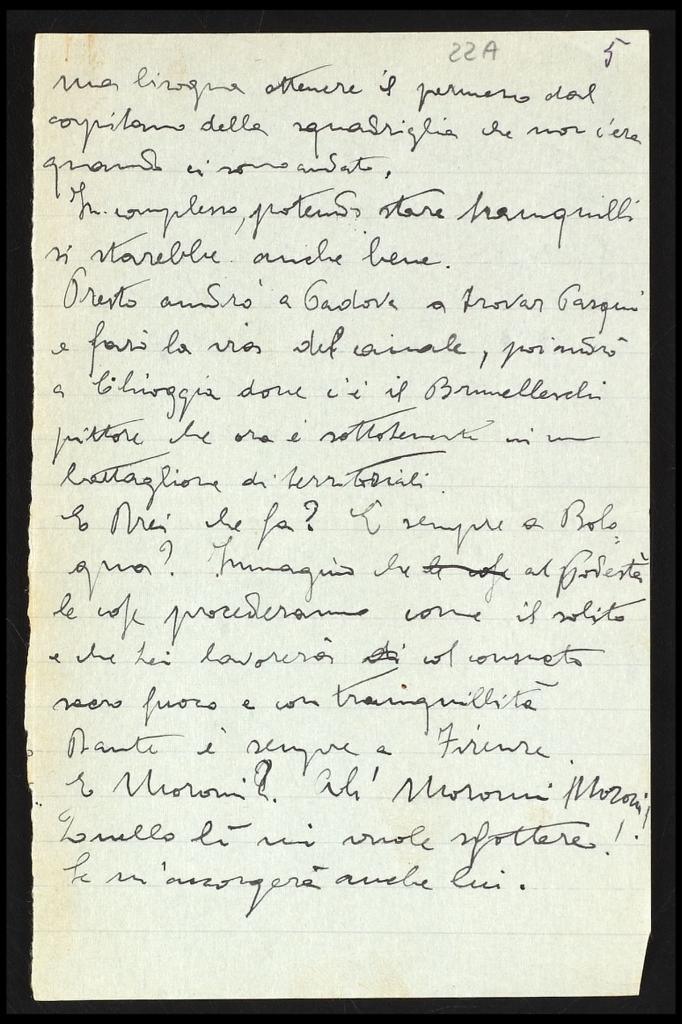 22A 5
ma bisogna ottenere il permesso dal
capitano della squadriglia che non c'era
quando ci sono andato.
In complesso, potendo stare tranquilli
si starebbe anche bene.
Presto andrò a Padova a trovar Pasqui
e farò la via del canale, poi andrò
a Chioggia dove c'è il Brunelleschi
pittore che ora è sottotenente in un
battaglione di territoriali.
E che fa? È sempre a Bolo
gna? Immagino che le cose al Podestà
le cose procederanno come il solito
e che Lei lavorerà di col consueto
sacro fuoco e con tranquillità
Dante è sempre a Firenze
E Moroni?. Ah! Moroni Moroni!
Quello lì mi vuole sfottere!
Se n'accorgerà anche lui.